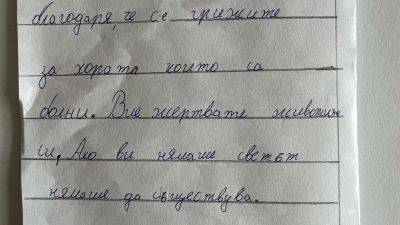 благодаря, че се грижите
за хората които са
болни. Вие жертвате животите
си, Ако ви нямаше светът
нямаше да съществува.